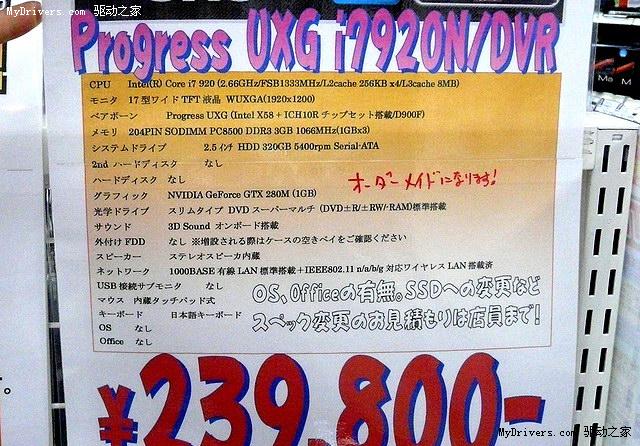 MyDrivers.com 驱动之家
Progress UXG i7920N/DVR
CPU Intel(R) Core i7 920 (2.66GHz/FSB1333MHz/L2cache 256KB x4/L3cache 8MB)
モニタ 17型ワイドTFT液晶 WUXGA(1920x1200)
ベアボーン Progress UXG (Intel X58 + ICH10R チップセット搭載/D900F)
メモリ 204PIN SODIMM PC8500 DDR3 3GB 1066MHz(1GBx3)
システムドライブ 2.5インチ HDD 320GB 5400rpm Serial-ATA
2nd ハードディスク なし
ハードディスク なし
オーダーメイドになります!
グラフィック NVIDIA GeForce GTX 280M (1GB)
光学ドライブ スリムタイプ DVDスーパーマルチ (DVD±R/±RW/-RAM)標準搭載
サウンド 3D Sound オンボード搭載
外付けFDD なし ※増設される際はケースの空きベイをご確認ください
スピーカー ステレオスピーカ内蔵
ネットワーク 1000BASE 有線LAN標準搭載+IEEE802.11 n/a/b/g 対応ワイヤレスLAN搭載済
USB接続サブモニタ なし
マウス 内蔵タッチパッド式
キーボード 日本語キーボード
OS なし
Office なし
OS、Officeの有無。SSDへの変更など
スペック変更のお見積もりは店員まで!
¥239,800-
MyDrivers.com 驱动之家